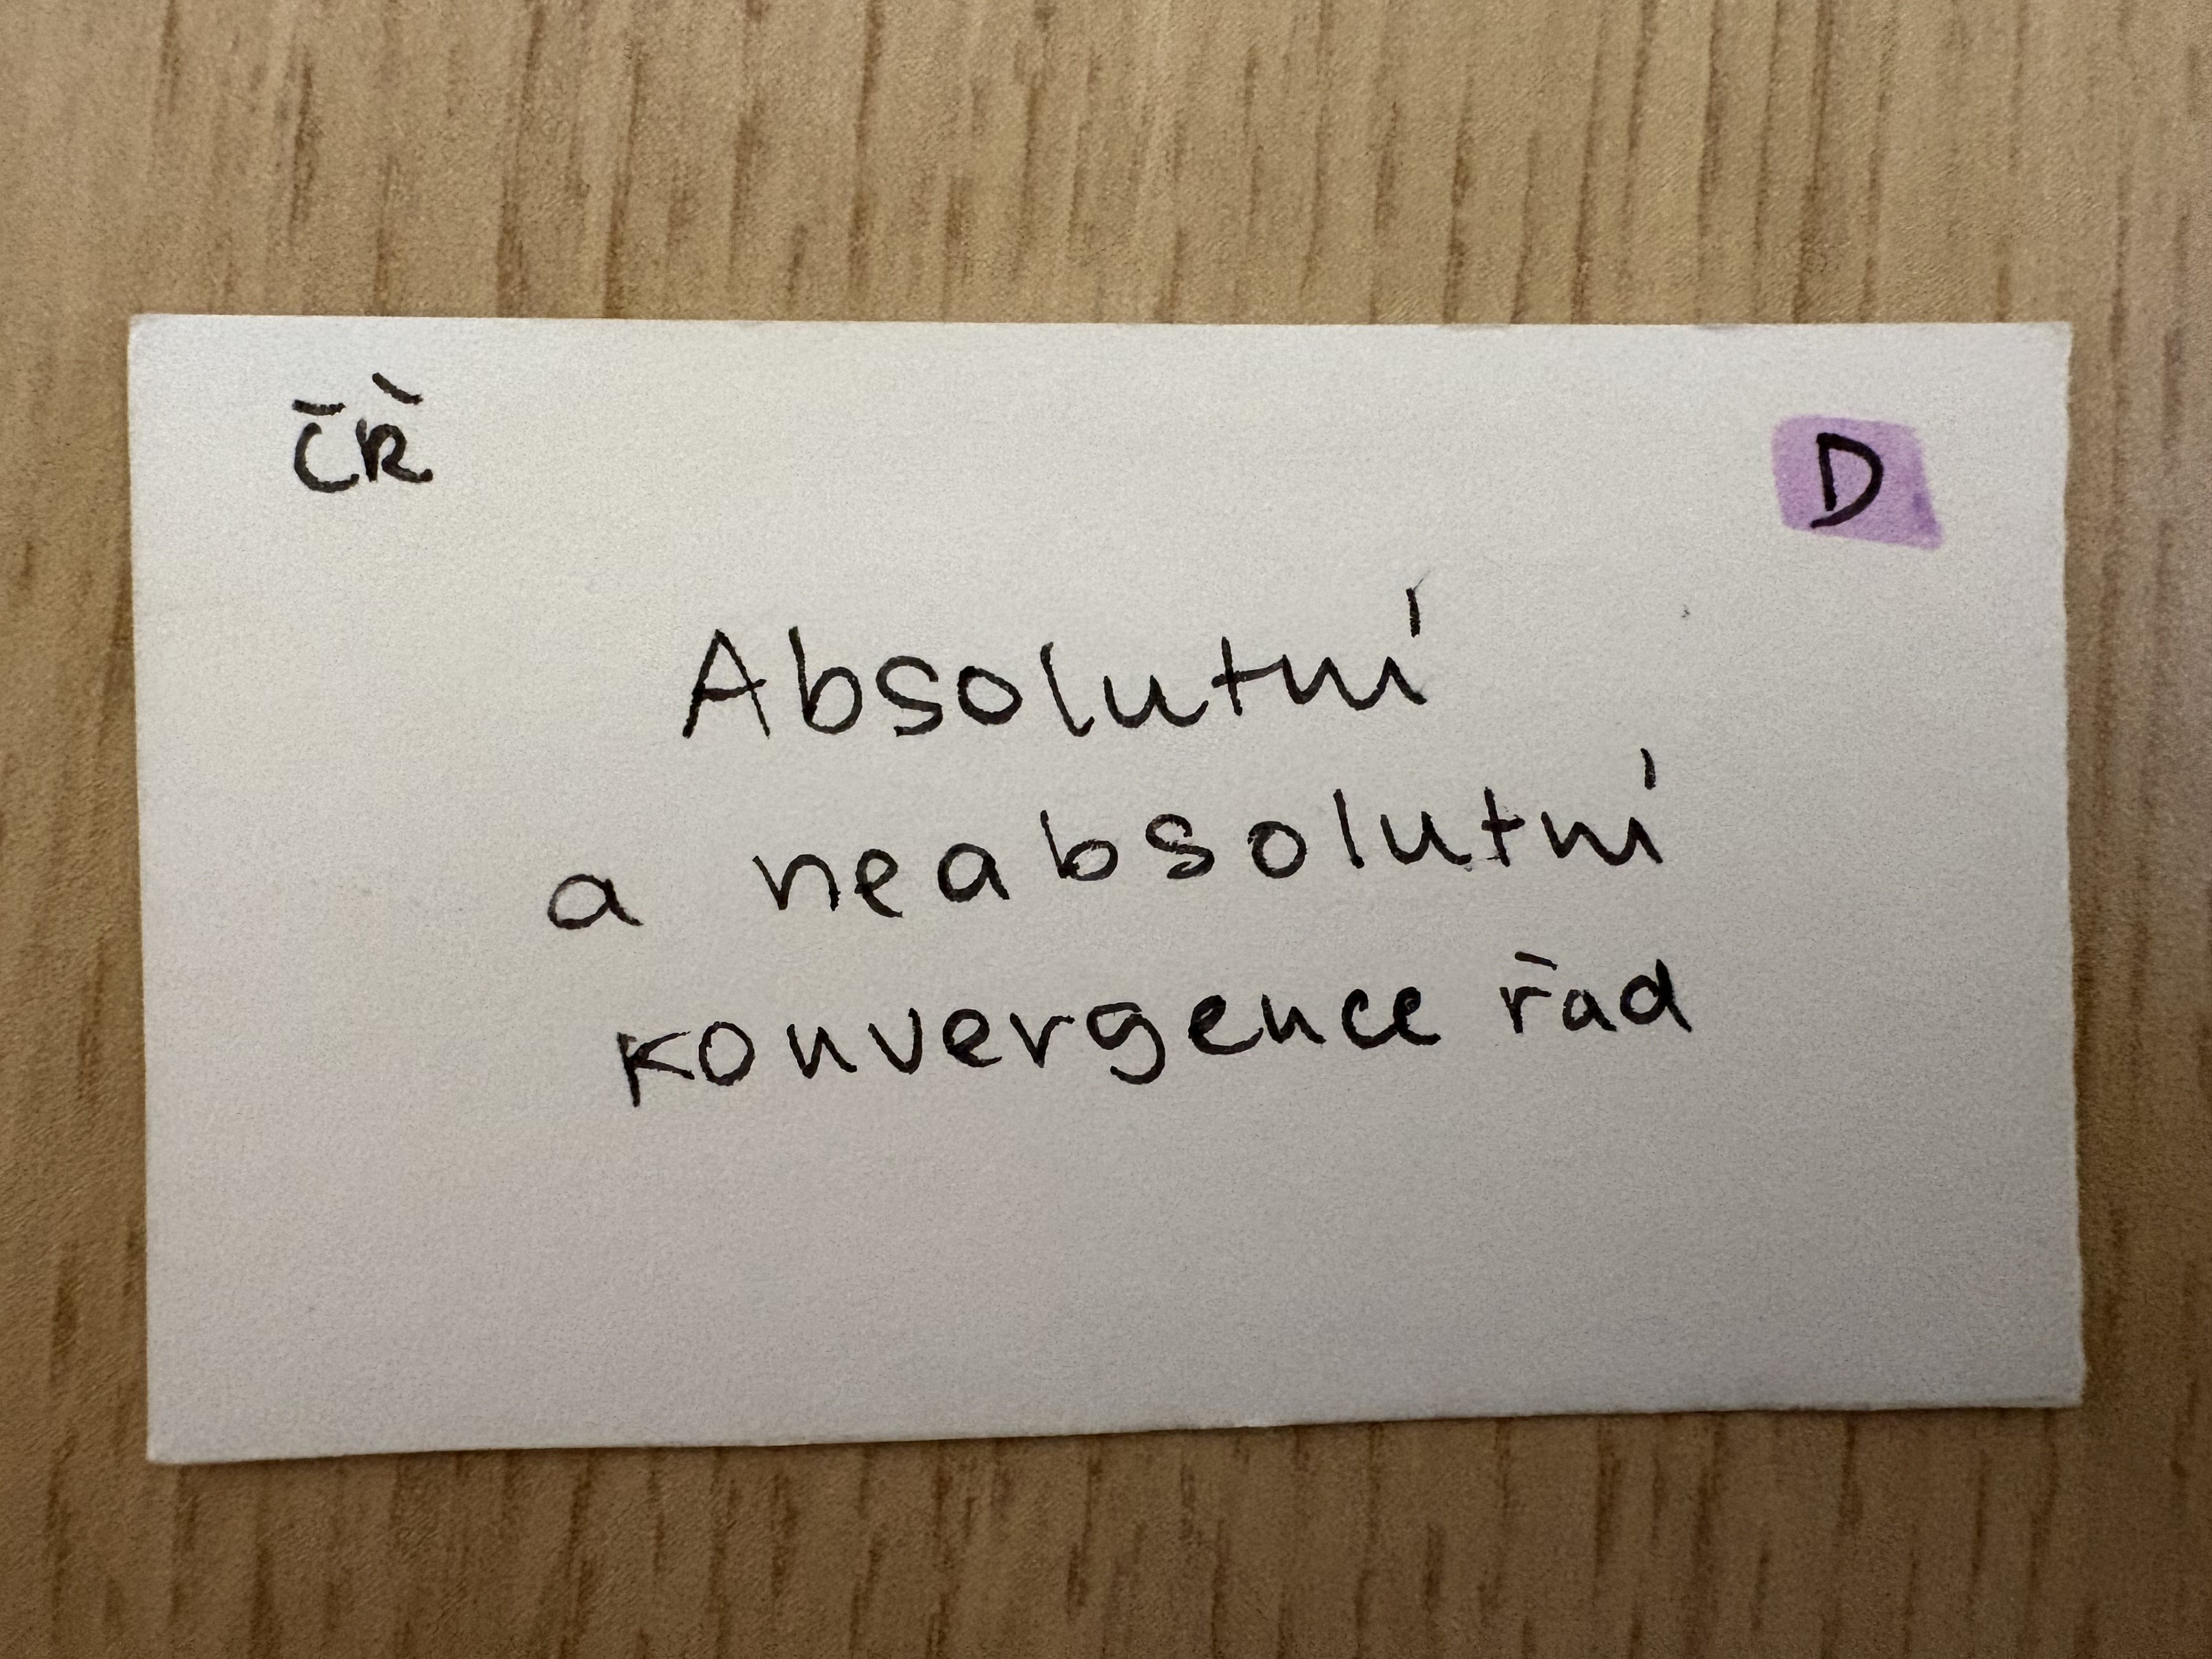 ČŘ D
Absolutní
a neabsolutní
konvergence řad